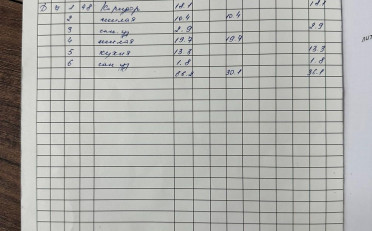 1 48 Коридор 18.1 18.1
2 жилая 10.4 10.4
3 сан.уз 2.9 2.9
4 жилая 19.7 19.7
5 кухня 13.3 13.3
6 сан.уз 1.8 1.8
66.2 30.1 36.1